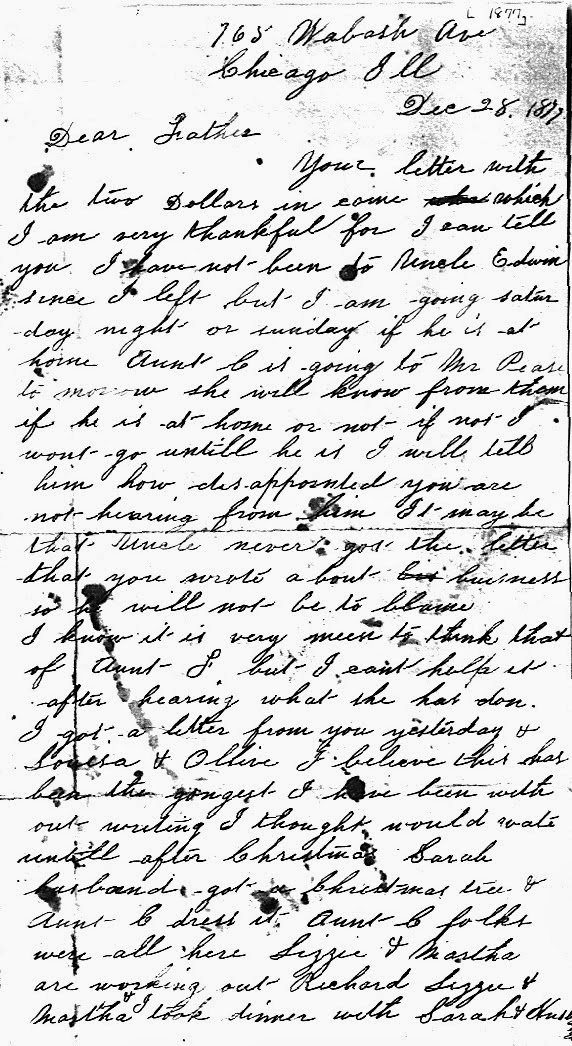 [1877]
765 Wabash Ave
Chicago Ill
Dec 28. 1877
Dear Father
Your letter with
the two Dollars in came which
I am very thankful for I can tell
you I have not been to Uncle Edwin
since I left but I am going satur
day night or sunday if he is at
home Aunt C is going to Mr Pease
to morrow she will know from them
if he is at home or not if not I
wont go untill he is I will tell
him how disappointed you are
not hearing from him It may be
that Uncle never got the letter
that you wrote about business
so he will not be to blame
I know it is very meen to think that
of Aunt S but I cant help it
after hearing what she has don.
I got a letter from you yesterday &
Louesa & Ollive I believe this has
ben the gongest I have been with
out writing I thought would wate
untill after Christmas Sarah
husband got a Christmas tree &
Aunt C dress it. Aunt C folks
were all here Lizzie & Martha
are working out Richard Lizzie &
Martha & I took dinner with Sarah & Husb